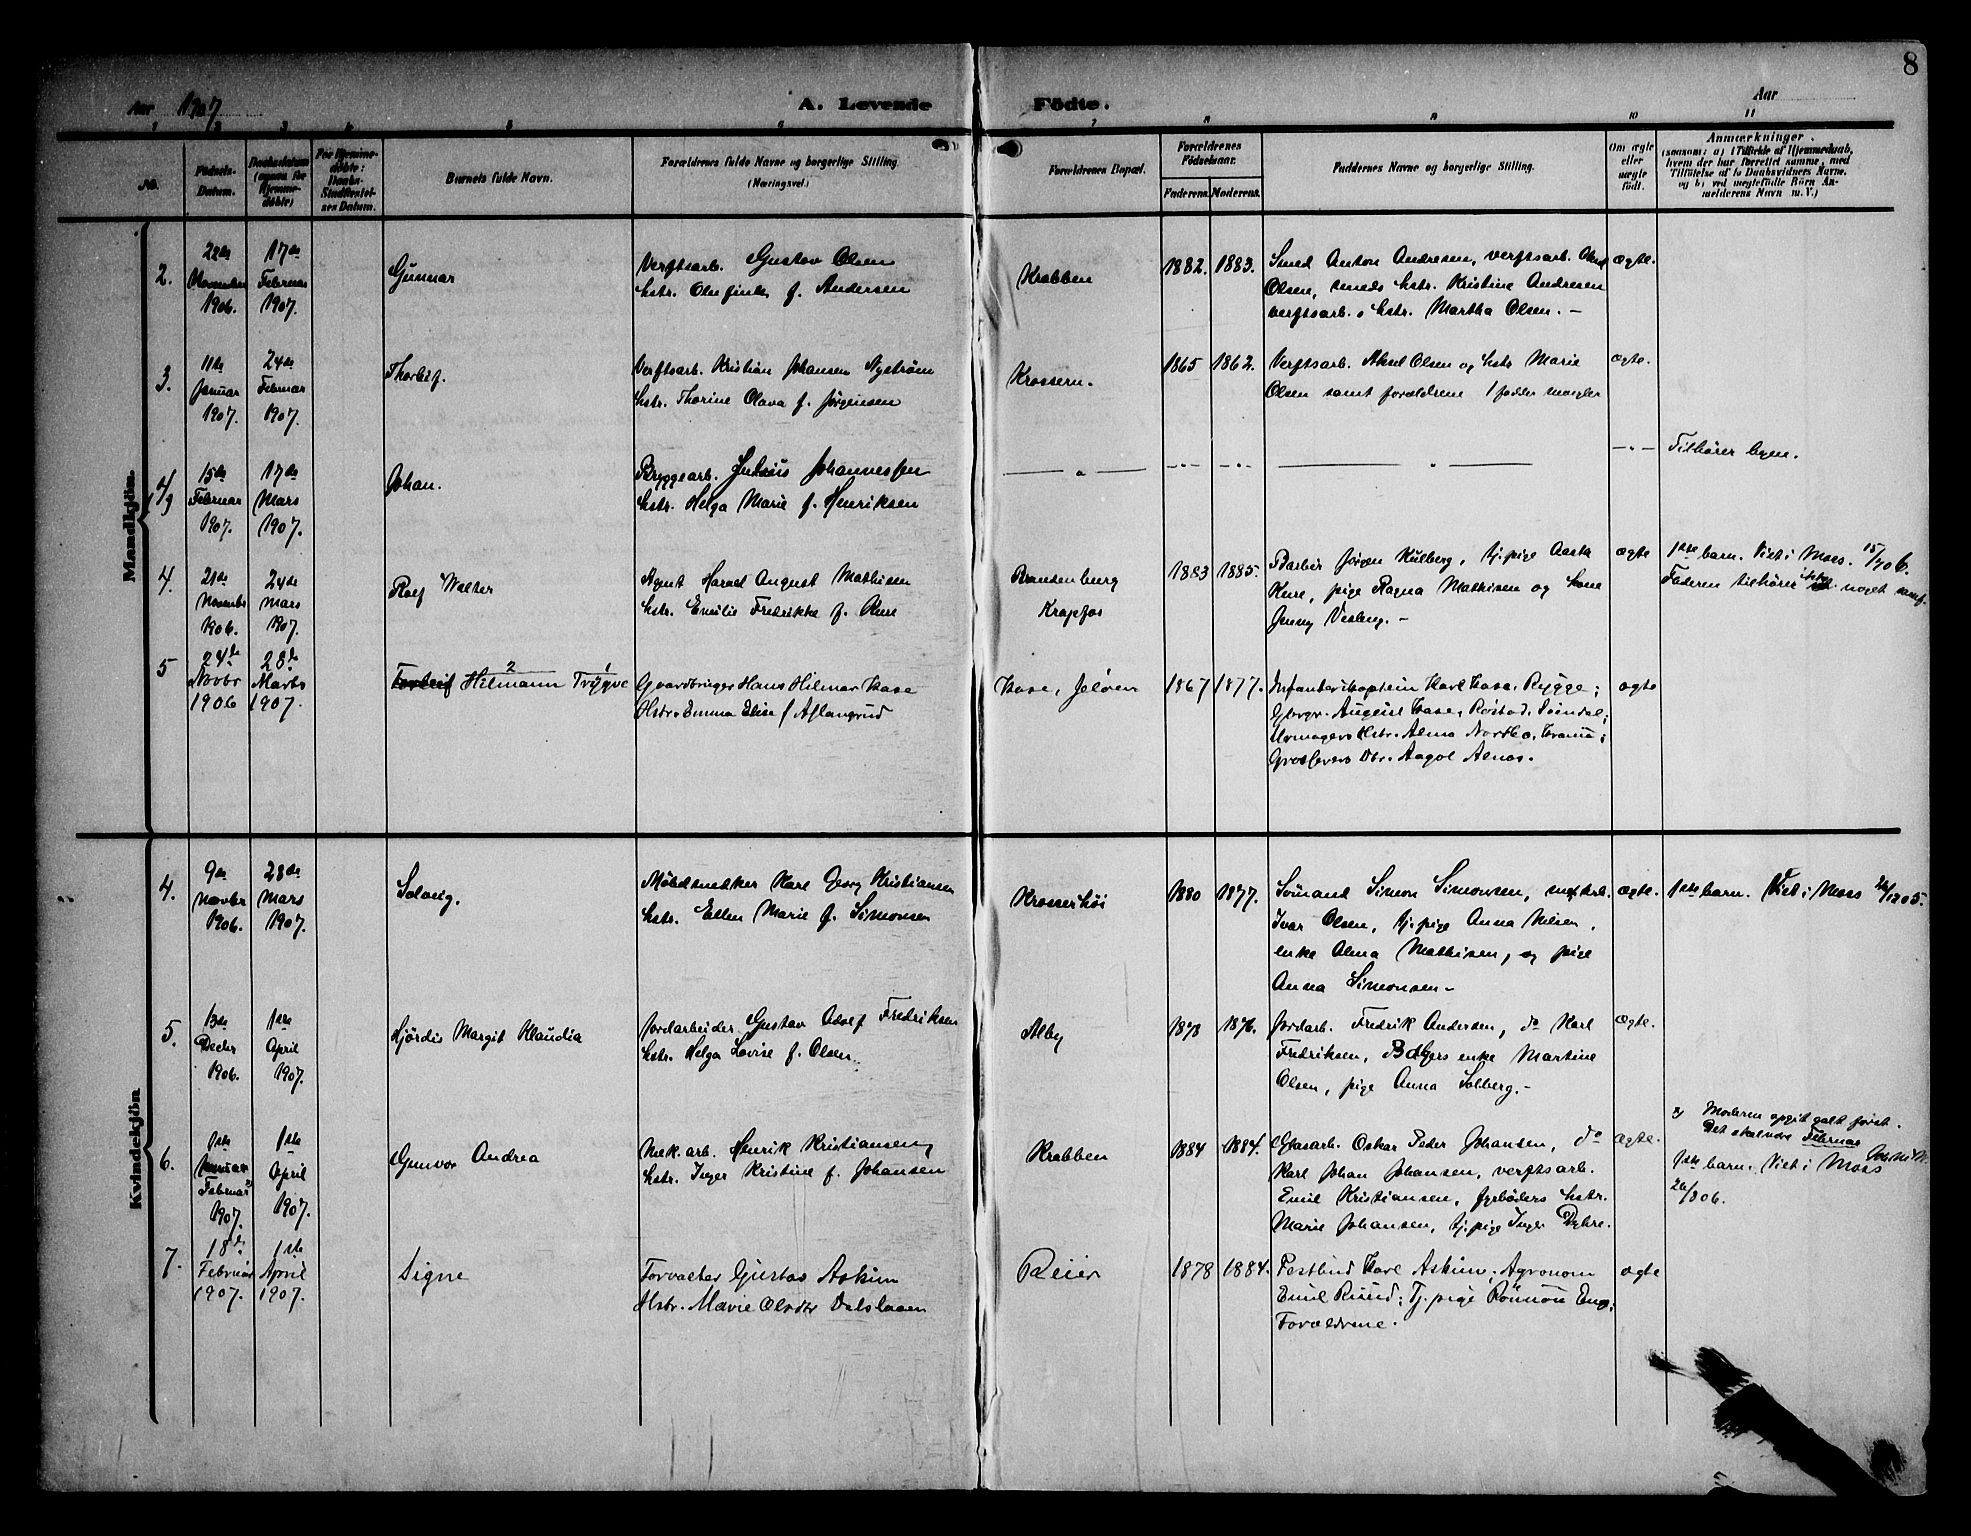 8
Aar 1907
A. Levende Födte.
Aar
1 2 3 4 5 6 7 8 9 10 11
No.
Födsels-Datum.
Daabsdatum (ogsaa for Hjemme-döbte)
For Hjemme-döbte: Daabs-Stadfæstel-ses Datum.
Barnets fulde Navn.
Forældrenes fulde Navne og borgerlige Stilling (Næringsvei.)
Forældrenes Bopæl.
Forældrenes Födselsaar.
Faderens. Moderens.
Faddernes Navne og borgerlige Stilling.
Om ægte eller uægte födt.
Anmærkninger.
(saasom: a) i Tilfælde af Hjemmedaab,
hvem der har forrettet samme, med
Tilföielse af to Daabsvidners Navne,
og b) ved uægtefödte Börn An-
melderens Navn m. V.)
Mandkjön.
2.
22de November 1906.
17de Februar 1907.
Gunnar
Verftsarb. Gustav Olsen
hstr. f. Andersen
Krabben
1882. 1883.
Smed Anton Andresen, verftsarb.
Olsen, smeds hstr. Kristine Andresen
verftsarb.s hstr. Martha Olsen. –
ægte.
3.
11te Januar 1907.
24de Februar 1907.
Thorleif.
Verftsarb. Kristian Johansen Nystrøm
hstr. Thorine Olava f. Jørgensen
Krossern.
1865 1862.
Verftsarb. Aksel Olsen og hstr Marie
Olsen samt forældrene 1 fadder mangler
ægte.
4/g
15de Februar 1907.
17de Mars 1907.
Johan.
Bryggearb. Julius Johannessen
hstr. Helga Marie f. Henriksen
— " —
- " - - " -
— " —
- " -
Tilhører byen.
4.
21de Novembr 1906.
24de Mars 1907.
Rolf Walter
Agent Harald August Mathisen
hstr. Emilie Fredrikke f. Kure
Brandenburg
Krapfos
1883 1885.
Barber Jørgen Kulberg, tj. pige Aasta
Kure, pige Ragna Mathisen og kone
Jenny Vesberg. –
ægte
1ste barn. Viet i Moss. 15/7 06.
Faderen tilhører ikke noget samf.
5
24de Novbr 1906
28de Marts 1907.
Torleif Hilmann 2 Trygve 1
Gaardbruger Hans Hilmar Kase
Hstr. Emma Elise f Aslangrud
Kase, Jeløen
1867 1877.
Infanterikaptein Karl Kase, Rygge;
Gbrgr. August Kase, Røstad, Søndal;
Urmagers Hstr. Alma Nordbo,
Grosserers Dtr. Aagot Alnæs.
ægte
Kvindekjön
4.
9de Novbr 1906.
28de Mars 1907.
Solveig.
Møbelsnekker Karl Georg Kristiansen
hstr. Ellen Marie f. Simonsen
Krosserhöi
1880 1877.
Sömand Simon Simonsen,
Ivar Olsen, tj. pige Anna Nilsen,
enke Alma Mathisen, og pige
Anna Simonsen –
ægte.
1ste barn. Viet i Moss 26/12 05.
5.
13de Decbr 1906.
1ste April 1907.
Hjördis Margit Klaudia
Jordarbeider Gustav Adolf Fredriksen
hstr. Helga Lovise f. Olsen
Alby
1878 1876.
Jordarb. Fredrik Andersen, do Karl
Fredriksen, enke Martine
Olsen, pige Anna Solberg. –
ægte.
6.
1ste Januar Februar x) 1907.
1ste April 1907.
Gunvor Andrea
Mek. arb. Henrik Kristiansen
hstr. Inger Kristine f. Johansen
Krabben
1884 1884.
Glasarb. Oskar Peder Johansen, do
Karl Johan Johansen, verftsarb.
Emil Kristiansen, fyrbøders hstr.
Marie Johansen, tj. pige Inger Dybre.
ægte.
x) Moderen opgit galt først.
Det skal være Februar
1ste barn. Viet i Moss
26/8 06.
7.
18de Februar 1907.
1ste April 1907.
Signe
Forvalter Gustav Askim
Hstr. Marie Olsdtr Dalslaaen
Reier
1878 1884.
Postbud Karl Askim; Agronom
Emil Ruud; Tj. pige Eng;
Forældrene.
ægte